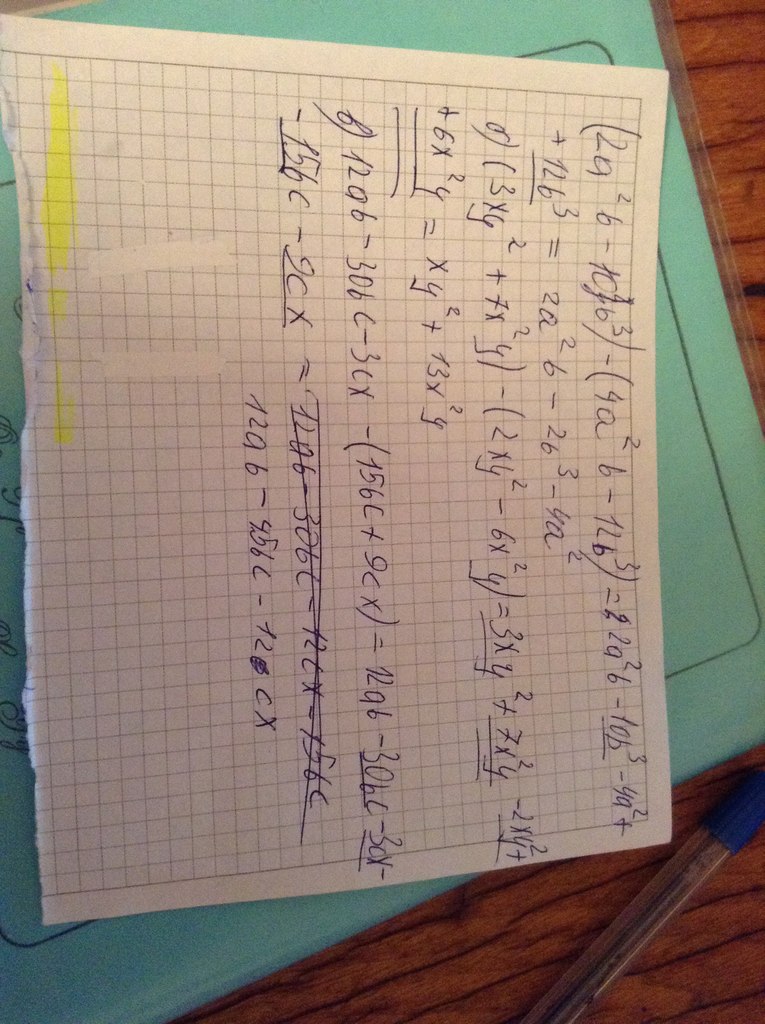 (2a²b - 10b³) - (4a²b - 12b³) = 2a²b - 10b³ - 4a² +
+ 12b³ = 2a²b - 2b³ - 4a²
б) (3xy² + 7x²y) - (2xy² - 6x²y) = 3xy² + 7x²y - 2xy² +
+ 6x²y = xy² + 13x²y
в) 12ab - 30bc - 3cx - (15bc + 9cx) = 12ab - 30bc - 3cx -
- 15bc - 9cx = 12ab - 30bc - 12cx - 15bc
12ab - 45bc - 12cx